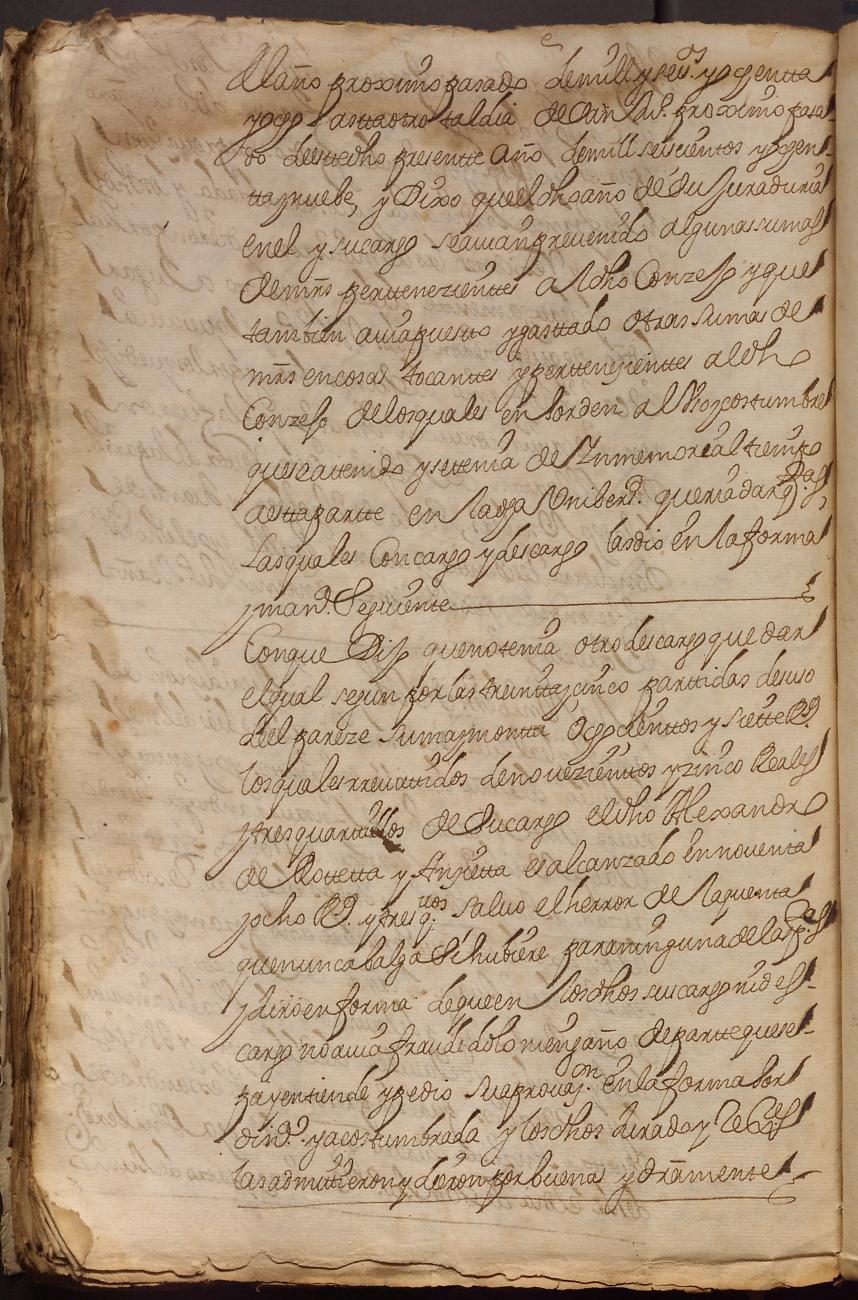 del año proximo pasado de mill y seis.os y ochentta
y ocho astta otro tal dia de San Ju.o proximo pasa-
do deste dho presentte Año de mill seiscientos y ochen-
tta y nuebe, y Dixo que el dho año de su Juraduria
en el y su cargo se avian prevenido algunas sumas
de mrs pertteneziennttes al dho Conzejo y que
tambien avia puestto y gasttado otras sumas de
mrs en cosas tocanttes y pertenezienttes al dho
Conzejo de los quales en horden al Uso y costumbre
que se a tenido y se ttenia de Inmemorial tiempo
a estta partte en la dha Uniberd. queria dar q.tas
Las quales Con cargo y descargo las dio en la forma
y man.a Seguiente
Conque Dijo que no tenia otro descargo que dar
el qual segun por las treintta y cinco parttidas de suso
del pareze suma y montta Ochocienttos y siette R.s
los quales revattidos de novezienttos y zinco Reales
y tres quartillos de Su cargo el dho Alexandro
de Rottetta y Anzetta es alcanzado en noventa
y ocho R.s y tres q.llos salvo el herror de la quenta
que nunca balga Si hubiere para ninguna de las p.tes
y Juró en forma de que en los dhos su cargo ni des-
cargo no avia fraude dolo ni engaño de partte que se-
pa y entiende y pedio su aprovaz.on en la forma hor
din.a y acostumbrada y los dhos Jurado y
las admittieron y dieron por buenas y dramente